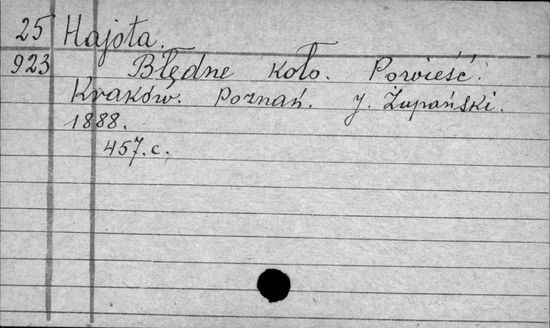 25 Hajota.
923 Błędne koło. Powieść.
Kraków. Poznań. J. Żupański.
1888.
457. c.